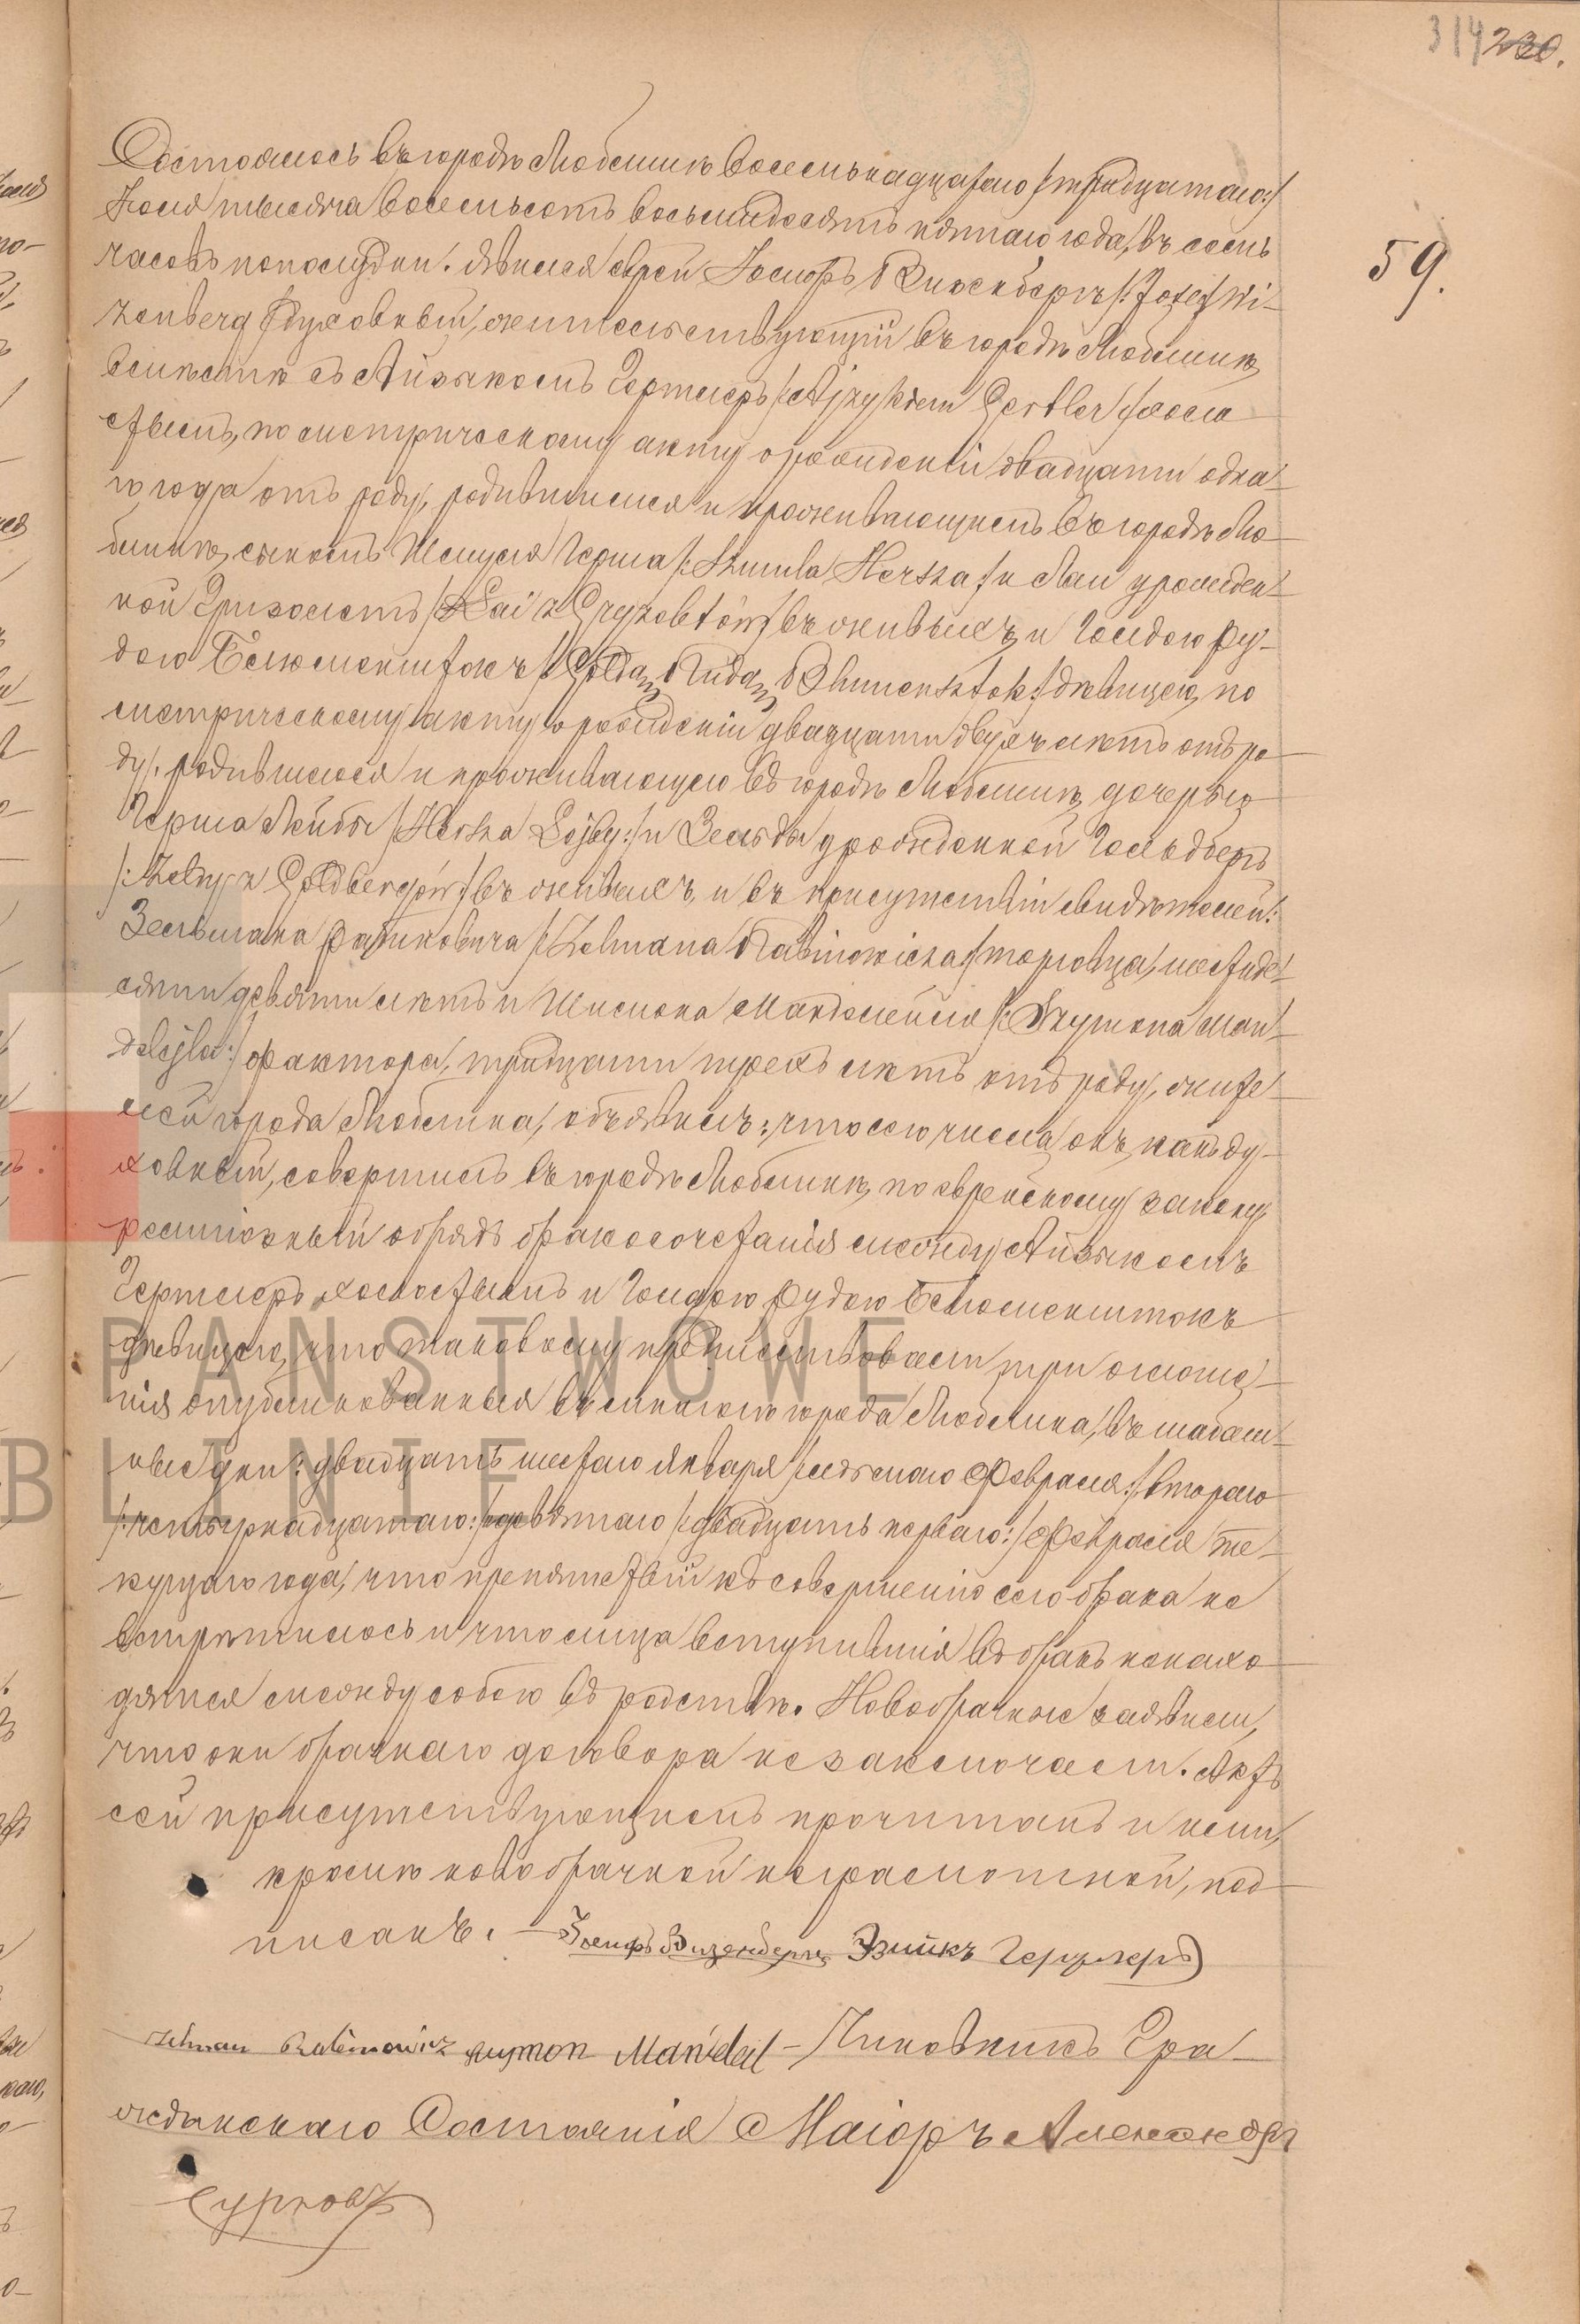 314 230.
59.
Состоялось въ городѣ Люблинѣ восемьнадцатаго /:тридцатаго:/
Іюля тысяча восемьсотъ восемьдесятъ пятаго года, въ семь
часовъ пополудни. Явился еврей Іосифъ Виженбергъ /:Josef Wi-
zenberg:/ духовный, жительствующій въ городѣ Люблинѣ,
вмѣстѣ съ Айзыкомъ Гертлеръ /:Ajzykiem Gertler:/ холо-
стымъ, по метрическому акту о рожденіи двадцати одна-
го года отъ роду, родившимся и проживающимъ въ городѣ Лю-
блинѣ, сыномъ Шмуля Герша /:Szmula Herszka:/ и Лаи урожден-
ной /:Lai z в живыхъ, и Голдою Ру-
дою Блюменштокъ /:Goldą Rudą Blumensztok:/ дѣвицею, по
метрическому акту о рожденіи двадцати двухъ лѣтъ отъ ро-
ду, родившеюся и проживающею въ городѣ Люблинѣ, дочерью
Герша Лейбы /:Herszka Lejby:/ и Зельды урожденной Гольдбергъ
/:Zeldy z Goldbergów:/ въ живыхъ, и въ присутствіи свидѣтелей:
Зельмана Рабиновича /:Zelmana Rabinowicza:/ торговца, шестиде-
сяти девяти лѣтъ и Шимона Мандельейля /:Szymona Man-
delejla:/ фактора, тридцати трехъ лѣтъ отъ роду, жите-
лей города Люблина, объявилъ: что сего числа онъ, какъ ду-
ховный, совершилъ въ городѣ Люблинѣ, по еврейскому закону,
религіозный обрядъ бракосочетанія между Айзыкомъ
Гертлеръ холостымъ и Голдою Рудою Блюменштокъ
дѣвицею, что таковому предшествовали три оглаше-
нія опубликованныя въ синагогѣ города Люблина, въ шабаш-
ные дни: двадцать шестаго Января /:седьмаго Февраля:/ втораго
/:четырнадцатаго:/ и девятаго /:двадцать перваго:/ Февраля те-
кущаго года, что препятствій къ совершенію сего брака не
встрѣтилось и что лица вступившія въ бракъ не нахо-
дятся между собою въ родствѣ. Новобрачные заявили,
что они брачнаго договора не заключали. Актъ
сей присутствующимъ прочитанъ и ими,
кромѣ новобрачной неграмотной, под-
писанъ. – Іосифъ Визенбергъ Эзикъ Герцлеръ
Zelman Rabinowicz Szymon Mandel – Чиновникъ Гра-
жданскаго Состоянія Маіоръ Александръ
Сурковъ
PANSTWOWE
BLINIE